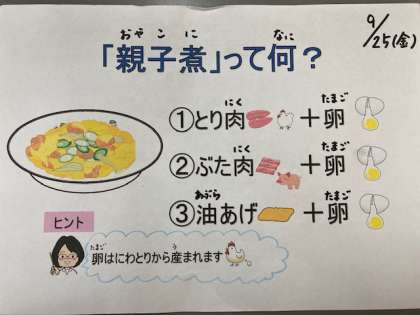 9/25(金)
「親子煮」って何？
おやこに なに
①とり肉 ＋卵
にく たまご
②ぶた肉 ＋卵
にく たまご
③油あげ ＋卵
あぶら たまご
ヒント
卵はにわとりから産まれます
たまご う